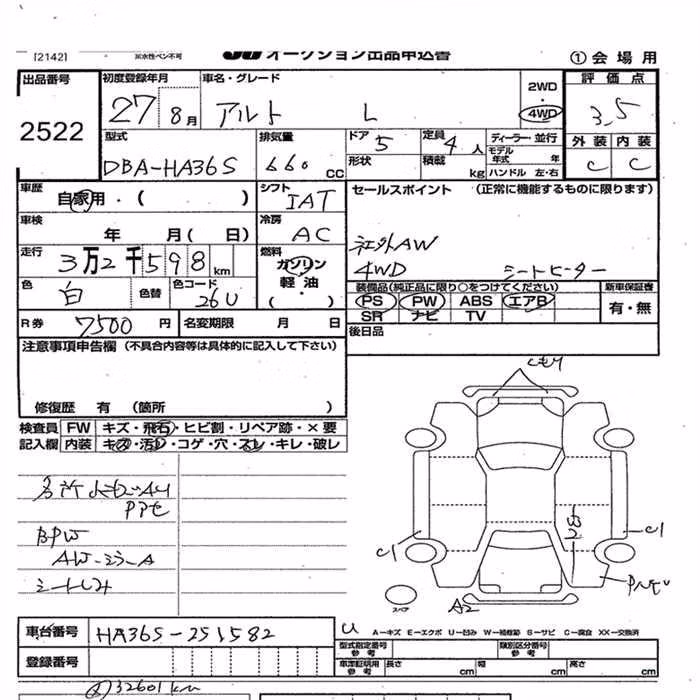 [2142]
※水性ペン不可
オークション出品申込書
①会場用
出品番号
2522
初度登録年月
27 8月
車名・グレード
アルト L
2WD
・
4WD
評価点
3.5
型式
DBA-HA36S
排気量
660 CC
ドア
5
定員
4人
形状
積載
kg
ディーラー・並行
モデル年式 年
ハンドル 左・右
外装 内装
C C
車歴
自家用・( )
シフト
IAT
セールスポイント (正常に機能するものに限ります)
車検
年 月( 日)
冷房
AC
社外AW
走行
3万2千598km
燃料
ガソリン
軽油・
( )
4WD シートヒーター
色
白
色替
色コード
26U
装備品(純正品に限り○をつけてください)
新車保証書
PS PW ABS エアB
SR ナビ TV
有・無
R券 7500円
名変期限 月 日
後日品
注意事項申告欄 (不具合内容等は具体的に記入して下さい)
修復歴 有 (箇所 )
検査員 FW キズ・飛石・ヒビ割・リペア跡・×要
記入欄 内装 キズ・汚レ・コゲ・穴・スレ・キレ・破レ
BPW
シートしみ
C1
C1
A2
スペア
車台番号
HA36S-251582
U
A-キズ E-エクボ U-凹み W-補修跡 S-サビ C-腐食 XX-交換済
登録番号
型式指定番号
参考
類別区分番号
参考
車庫証明用
参考
長さ cm
幅 cm
高さ cm
32601km